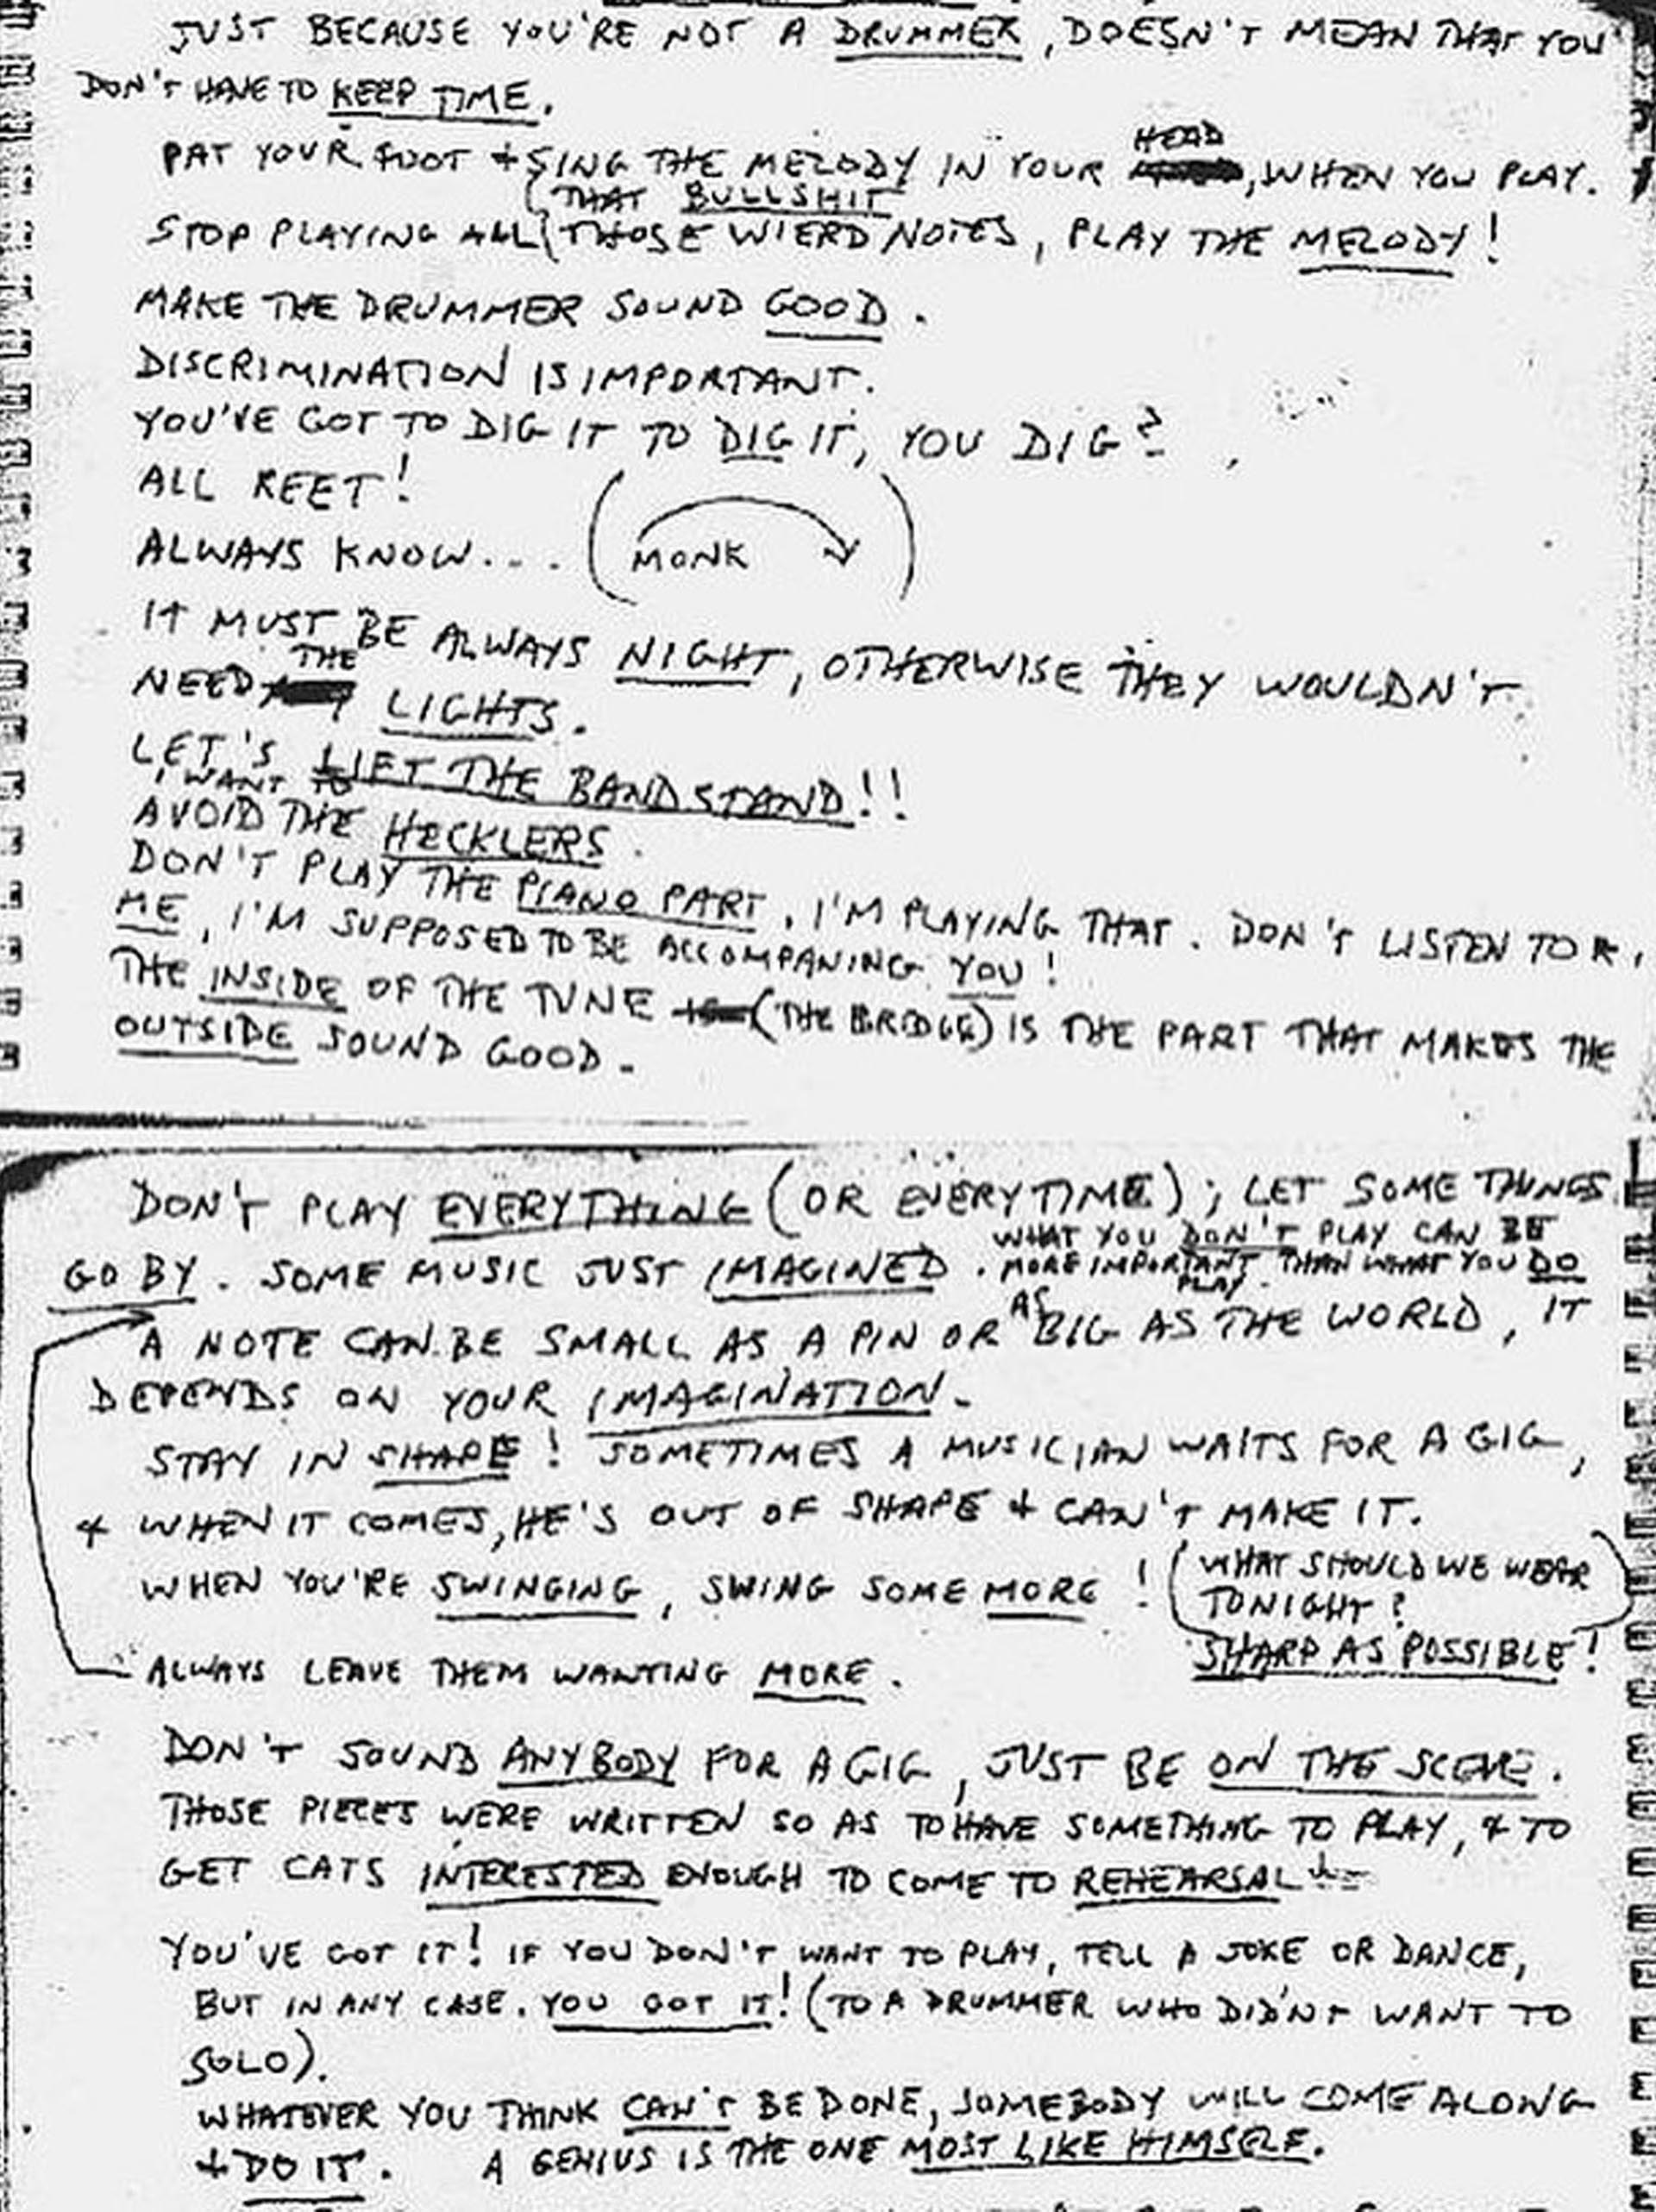 JUST BECAUSE YOU'RE NOT A DRUMMER, DOESN'T MEAN THAT YOU
DON'T HAVE TO KEEP TIME.
HEAD
PAT YOUR FOOT + SING THE MELODY IN YOUR , WHEN YOU PLAY.
(THAT BULLSHIT
STOP PLAYING ALL (THOSE WIERD NOTES, PLAY THE MELODY!
MAKE THE DRUMMER SOUND GOOD.
DISCRIMINATION IS IMPORTANT.
YOU'VE GOT TO DIG IT TO DIG IT, YOU DIG?
ALL REET!
ALWAYS KNOW... (MONK)
IT MUST BE ALWAYS NIGHT, OTHERWISE THEY WOULDN'T
THE
NEED LIGHTS.
LET'S LIFT THE BANDSTAND!!
I WANT TO
AVOID THE HECKLERS.
DON'T PLAY THE PIANO PART, I'M PLAYING THAT. DON'T LISTEN TO
ME, I'M SUPPOSED TO BE ACCOMPANING YOU!
THE INSIDE OF THE TUNE (THE BRIDGE) IS THE PART THAT MAKES THE
OUTSIDE SOUND GOOD.
DON'T PLAY EVERYTHING (OR EVERYTIME); LET SOME THINGS
WHAT YOU DON'T PLAY CAN BE
GO BY. SOME MUSIC JUST IMAGINED. MORE IMPORTANT THAN WHAT YOU DO
PLAY.
AS
A NOTE CAN BE SMALL AS A PIN OR BIG AS THE WORLD, IT
DEPENDS ON YOUR IMAGINATION.
STAY IN SHAPE! SOMETIMES A MUSICIAN WAITS FOR A GIG,
+ WHEN IT COMES, HE'S OUT OF SHAPE + CAN'T MAKE IT.
WHEN YOU'RE SWINGING, SWING SOME MORE! (WHAT SHOULD WE WEAR
TONIGHT?)
SHARP AS POSSIBLE!
ALWAYS LEAVE THEM WANTING MORE.
DON'T SOUND ANYBODY FOR A GIG, JUST BE ON THE SCENE.
THOSE PIECES WERE WRITTEN SO AS TO HAVE SOMETHING TO PLAY, + TO
GET CATS INTERESTED ENOUGH TO COME TO REHEARSAL
YOU'VE GOT IT! IF YOU DON'T WANT TO PLAY, TELL A JOKE OR DANCE,
BUT IN ANY CASE. YOU GOT IT! (TO A DRUMMER WHO DID'NT WANT TO
SOLO).
WHATEVER YOU THINK CAN'T BE DONE, SOMEBODY WILL COME ALONG
+ DO IT. A GENIUS IS THE ONE MOST LIKE HIMSELF.